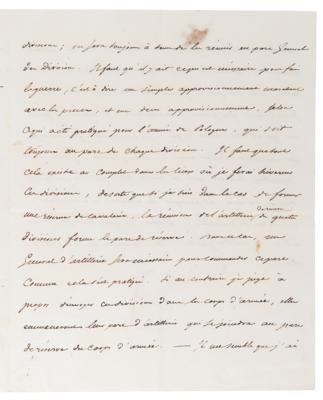 division; on fera toujours à même de les réunir en parc Général
de Division. Il faut qu'il y ait ce qui est nécessaire pour faire
la guerre, c'est à dire un simple approvisionnement
avec les pièces, et un demi approvisionnement, selon
ce qui a été pratiqué pour l'armée de Pologne, qui soit
toujours au parc de chaque division. Il faut que tout
cela existe au complet dans le tems où je ferai
ces divisions, de sorte que si je suis dans le cas de former
une réserve de cavalerie, la réunion de l'artillerie de quatre
divisions forme le parc de réserve. un
Général d'artillerie pour commander ce parc
comme cela s'est pratiqué. Si au contraire je juge à
propos d'envoyer ces divisions dans les corps d'armée, elles
emmeneront leur parc d'artillerie qui se joindra au parc
de réserve du corps d'armée. — Il me semble que j'ai